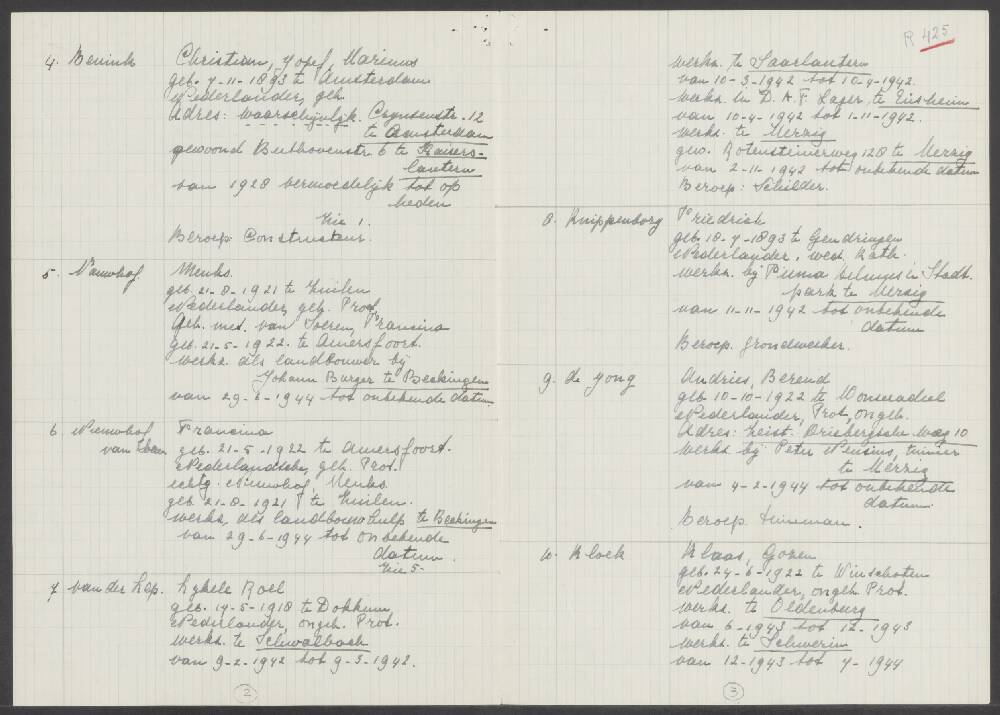 4. Benink Christiaan, Josef, Marinus
geb. 7-11-1893 te Amsterdam
Nederlander, geh.
Adres: waarschijnlijk. 12
te Amsterdam
gewoond Beethovenstr. 6 te Kaisers-
lautern
van 1928 vermoedelijk tot op
heden
Zie 1.
Beroep: Constructeur.
5. Nieuwhof. Menks.
geb. 21-8-1921 te Zuilen
Nederlander, geh. Prot.
Geh. met. van Soeren, Francina
geb. 21-5-1922 te Amersfoort.
werkz. als landbouwer bij
Johann Burger te Beckingen
van 29-6-1944 tot onbekende datum.
6. Nieuwhof Francina
van geb. 21-5-1922 te Amersfoort.
Nederlandsche, geh. Prot.
echtg. Nieuwhof, Menks.
geb. 21-8-1921 te Zuilen.
werkz. als landbouwhulp te Beckingen
van 29-6-1944 tot onbekende
datum.
Zie 5.
7. van der Lep. Lykele Roel
geb. 19-5-1918 te Dokkum,
Nederlander, ongeh. Prot.
werkz. te Schwalbach
van 9-2-1942 tot 9-3-1942.
2
R 425
werkz. te Saarlautern
van 10-3-1942 tot 10-4-1942.
werkz. in D.A.F. Lager, te Ensheim
van 10-4-1942 tot 1-11-1942.
werkz. te Merzig
gew. Rotensteinerweg 128 te Merzig
van 2-11-1942 tot onbekende datum
Beroep: Schilder.
8. Knippenborg Friedrich
geb. 18-7-1893 te Gendringen
Nederlander, wed. Kath.
werkz. bij Firma in Stadt.
park te Merzig
van 11-11-1942 tot onbekende
datum
Beroep. grondwerker.
9. de Jong Andries, Berend
geb. 10-10-1922 te Wonseradeel
Nederlander, Prot, ongeh.
Adres: Zeist. Drisbergsche weg 10
werkz. bij Peter Nensins, tuinier
te Merzig
van 4-2-1944 tot onbekende
datum.
Beroep. tuinman.
10. Klock Klaas, Gozen
geb. 24-6-1922 te Winschoten
Nederlander, ongeh. Prot.
werkz. te Oldenburg
van 6-1943 tot 12-1943
werkz. te Schwerin
van 12-1943 tot 4-1944
3